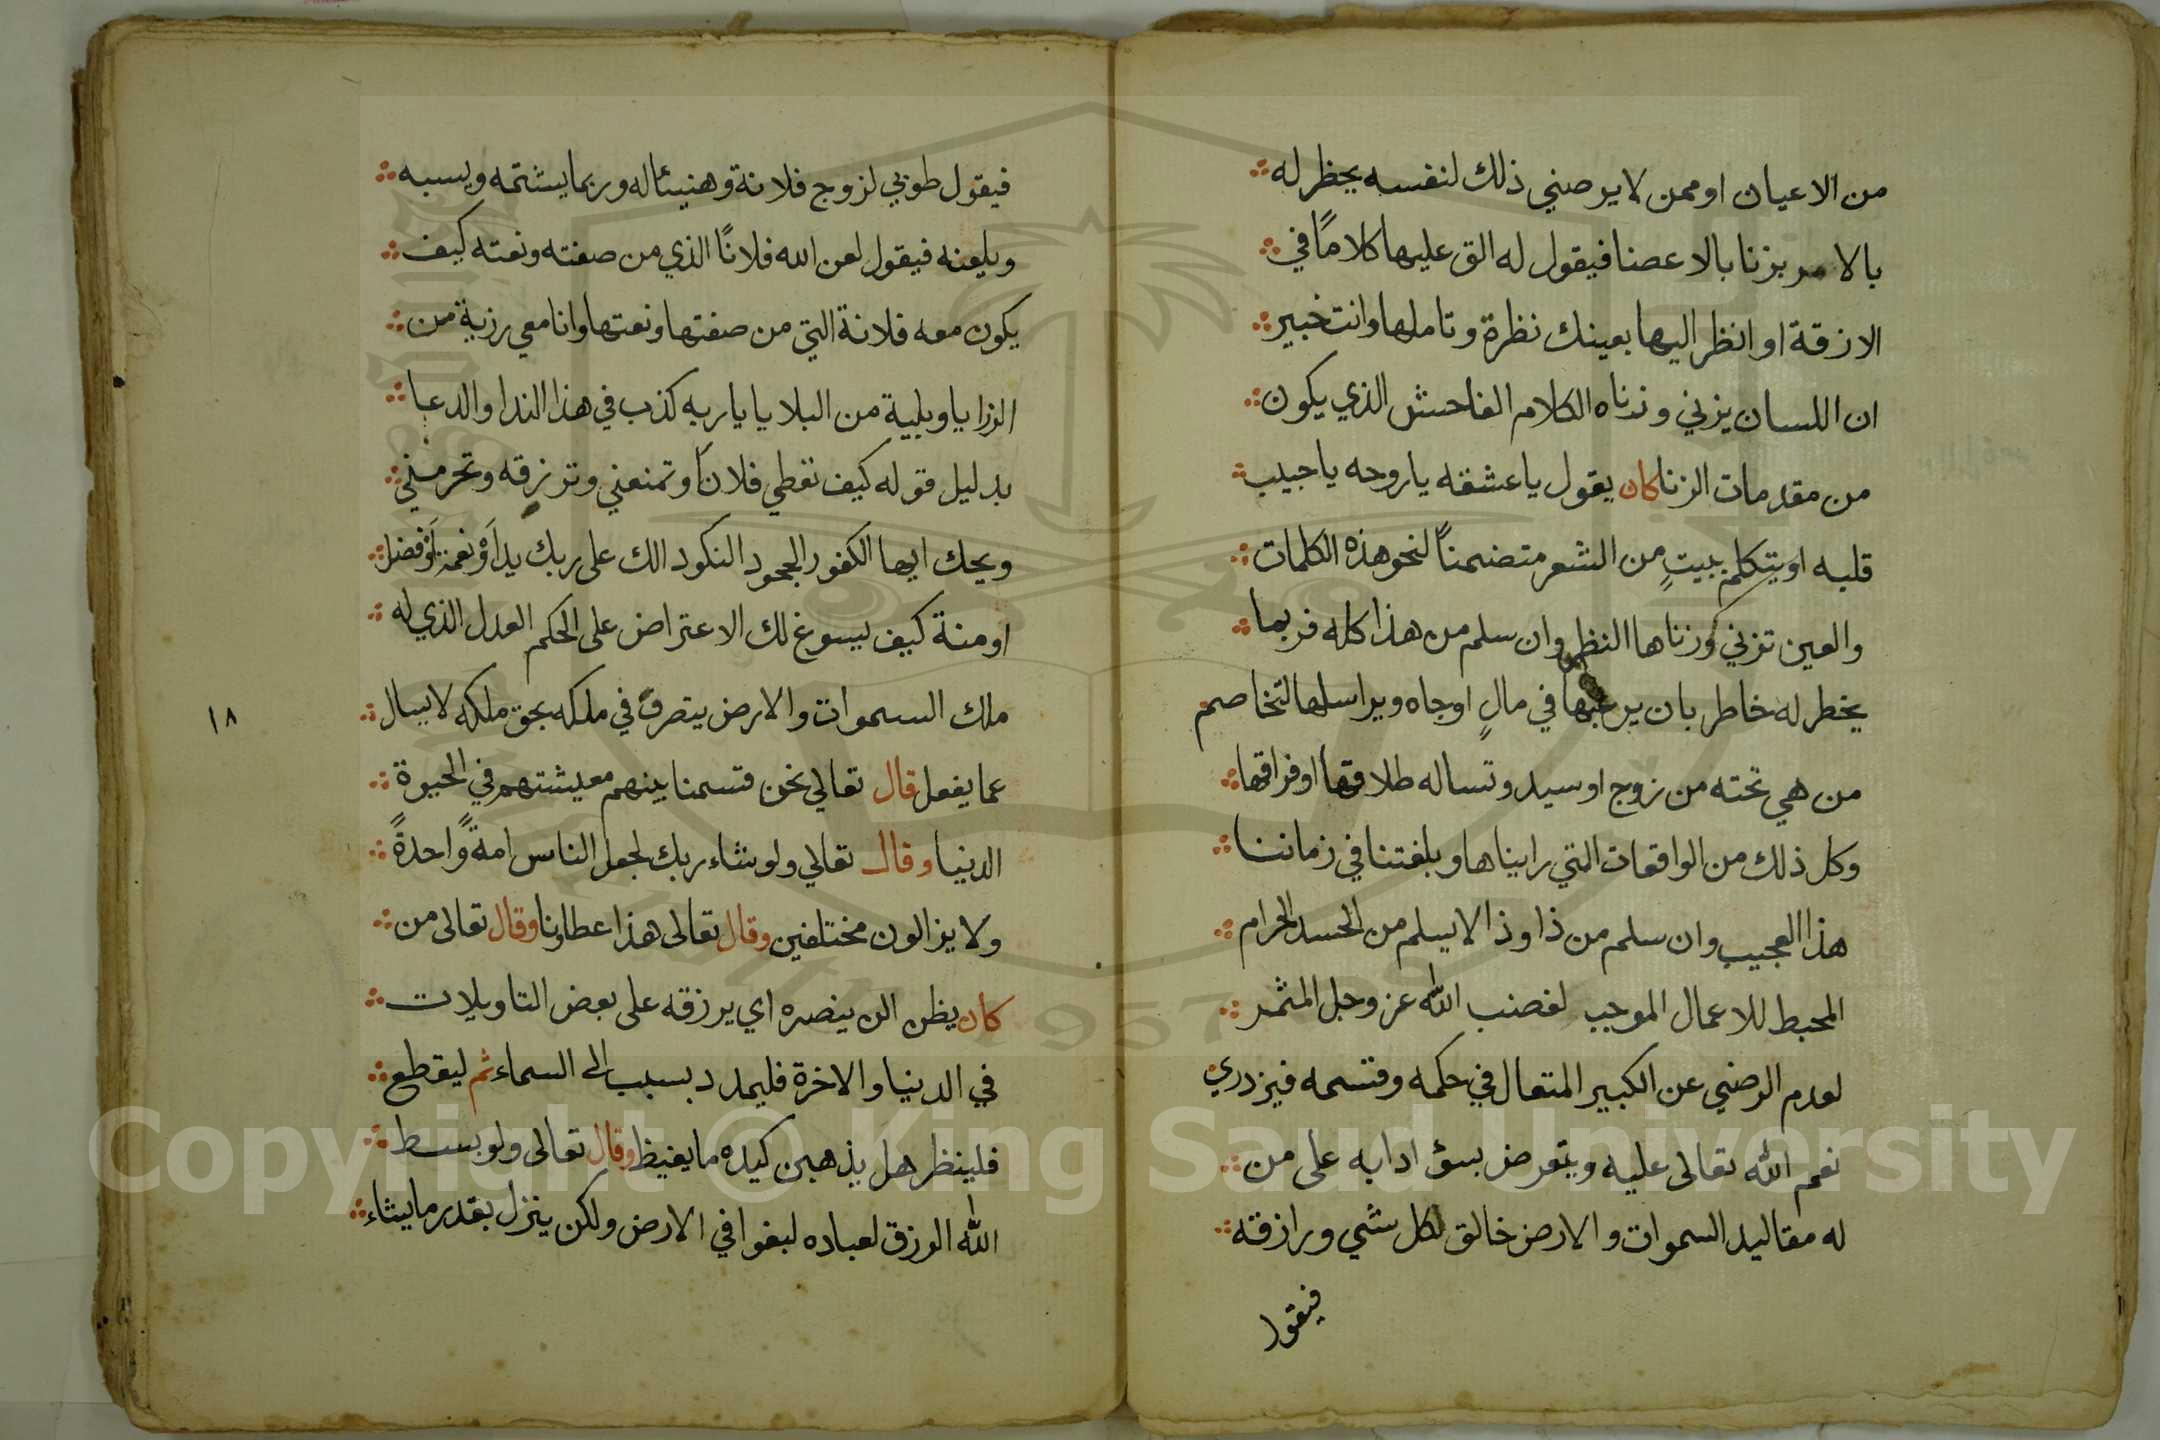 من الاعيان او ممن لا يرضي ذلك لنفسه يخطر له
بالامر بزنا بالاعضا فيقول له الق عليها كلامًا في
الازقة او انظر اليها بعينك نظرة وتاملها وانت خبير
ان اللسان يزني وزناه الكلام الفاحش الذي يكون
من مقدمات الزنا كان يقول يا عشقه يا روحه يا حبيب
قلبه او يتكلم ببيتٍ من الشعر متضمنًا لنحو هذه الكلمات
والعين تزني وزناها النظر وان سلم من هذا كله فربما
يخطر له خاطر بان يرغبها في مالٍ او جاه ويراسلها لتخاصم
من هي تحته من زوج او سيد وتساله طلاقها او فراقها
وكل ذلك من الواقعات التي رايناها وبلغتنا في زماننا
هذا العجيب وان سلم من ذا وذا لا يسلم من الحسد الحرام
المحبط للاعمال الموجب لغضب الله عز وجل المثمر
لعدم الرضي عن الكبير المتعال في حكمه وقسمه فيزدري
نعم الله تعالى عليه ويتعرض بسؤ ادابه على من
له مقاليد السموات والارض خالق لكل شي ورازقه
فيقول
فيقول طوبي لزوج فلانة وهنيئا له وربما يشتمه ويسبه
ويلعنه فيقول لعن الله فلانًا الذي من صفته ونعته كيف
يكون معه فلانة التي من صفتها ونعتها وانا معي رزية من
الرزايا وبلية من البلايا يا ربه كذب في هذا الندا والدعا
بدليل قوله كيف تعطي فلانًا وتمنعني وترزقه وتحرمني
ويحك ايها الكفور الجحود النكود الك على ربك يدًا ونعمة وفضلا
او منة كيف يسوغ لك الاعتراض على الحكم العدل الذي له
ملك السموات والارض يتصرف في ملكه بحق ملكه لا يسال
عما يفعل قال تعالي نحن قسمنا بينهم معيشتهم في الحيوة
الدنيا وقال تعالي ولو شاء ربك لجعل الناس امةً واحدةً
ولا يزالون مختلفين وقال تعالى هذا عطاونا وقال تعالى من
كان يظن الن ينصره اي يرزقه على بعض التاويلات
في الدنيا والاخرة فليمدد بسبب الى السماء ثم ليقطع
فلينظر هل يذهبن كيده ما يغيظ وقال تعالى ولو بسط
الله الرزق لعباده لبغوا في الارض ولكن ينزل بقدر ما يشاء
١٨
Copyright © King Saud University
1957